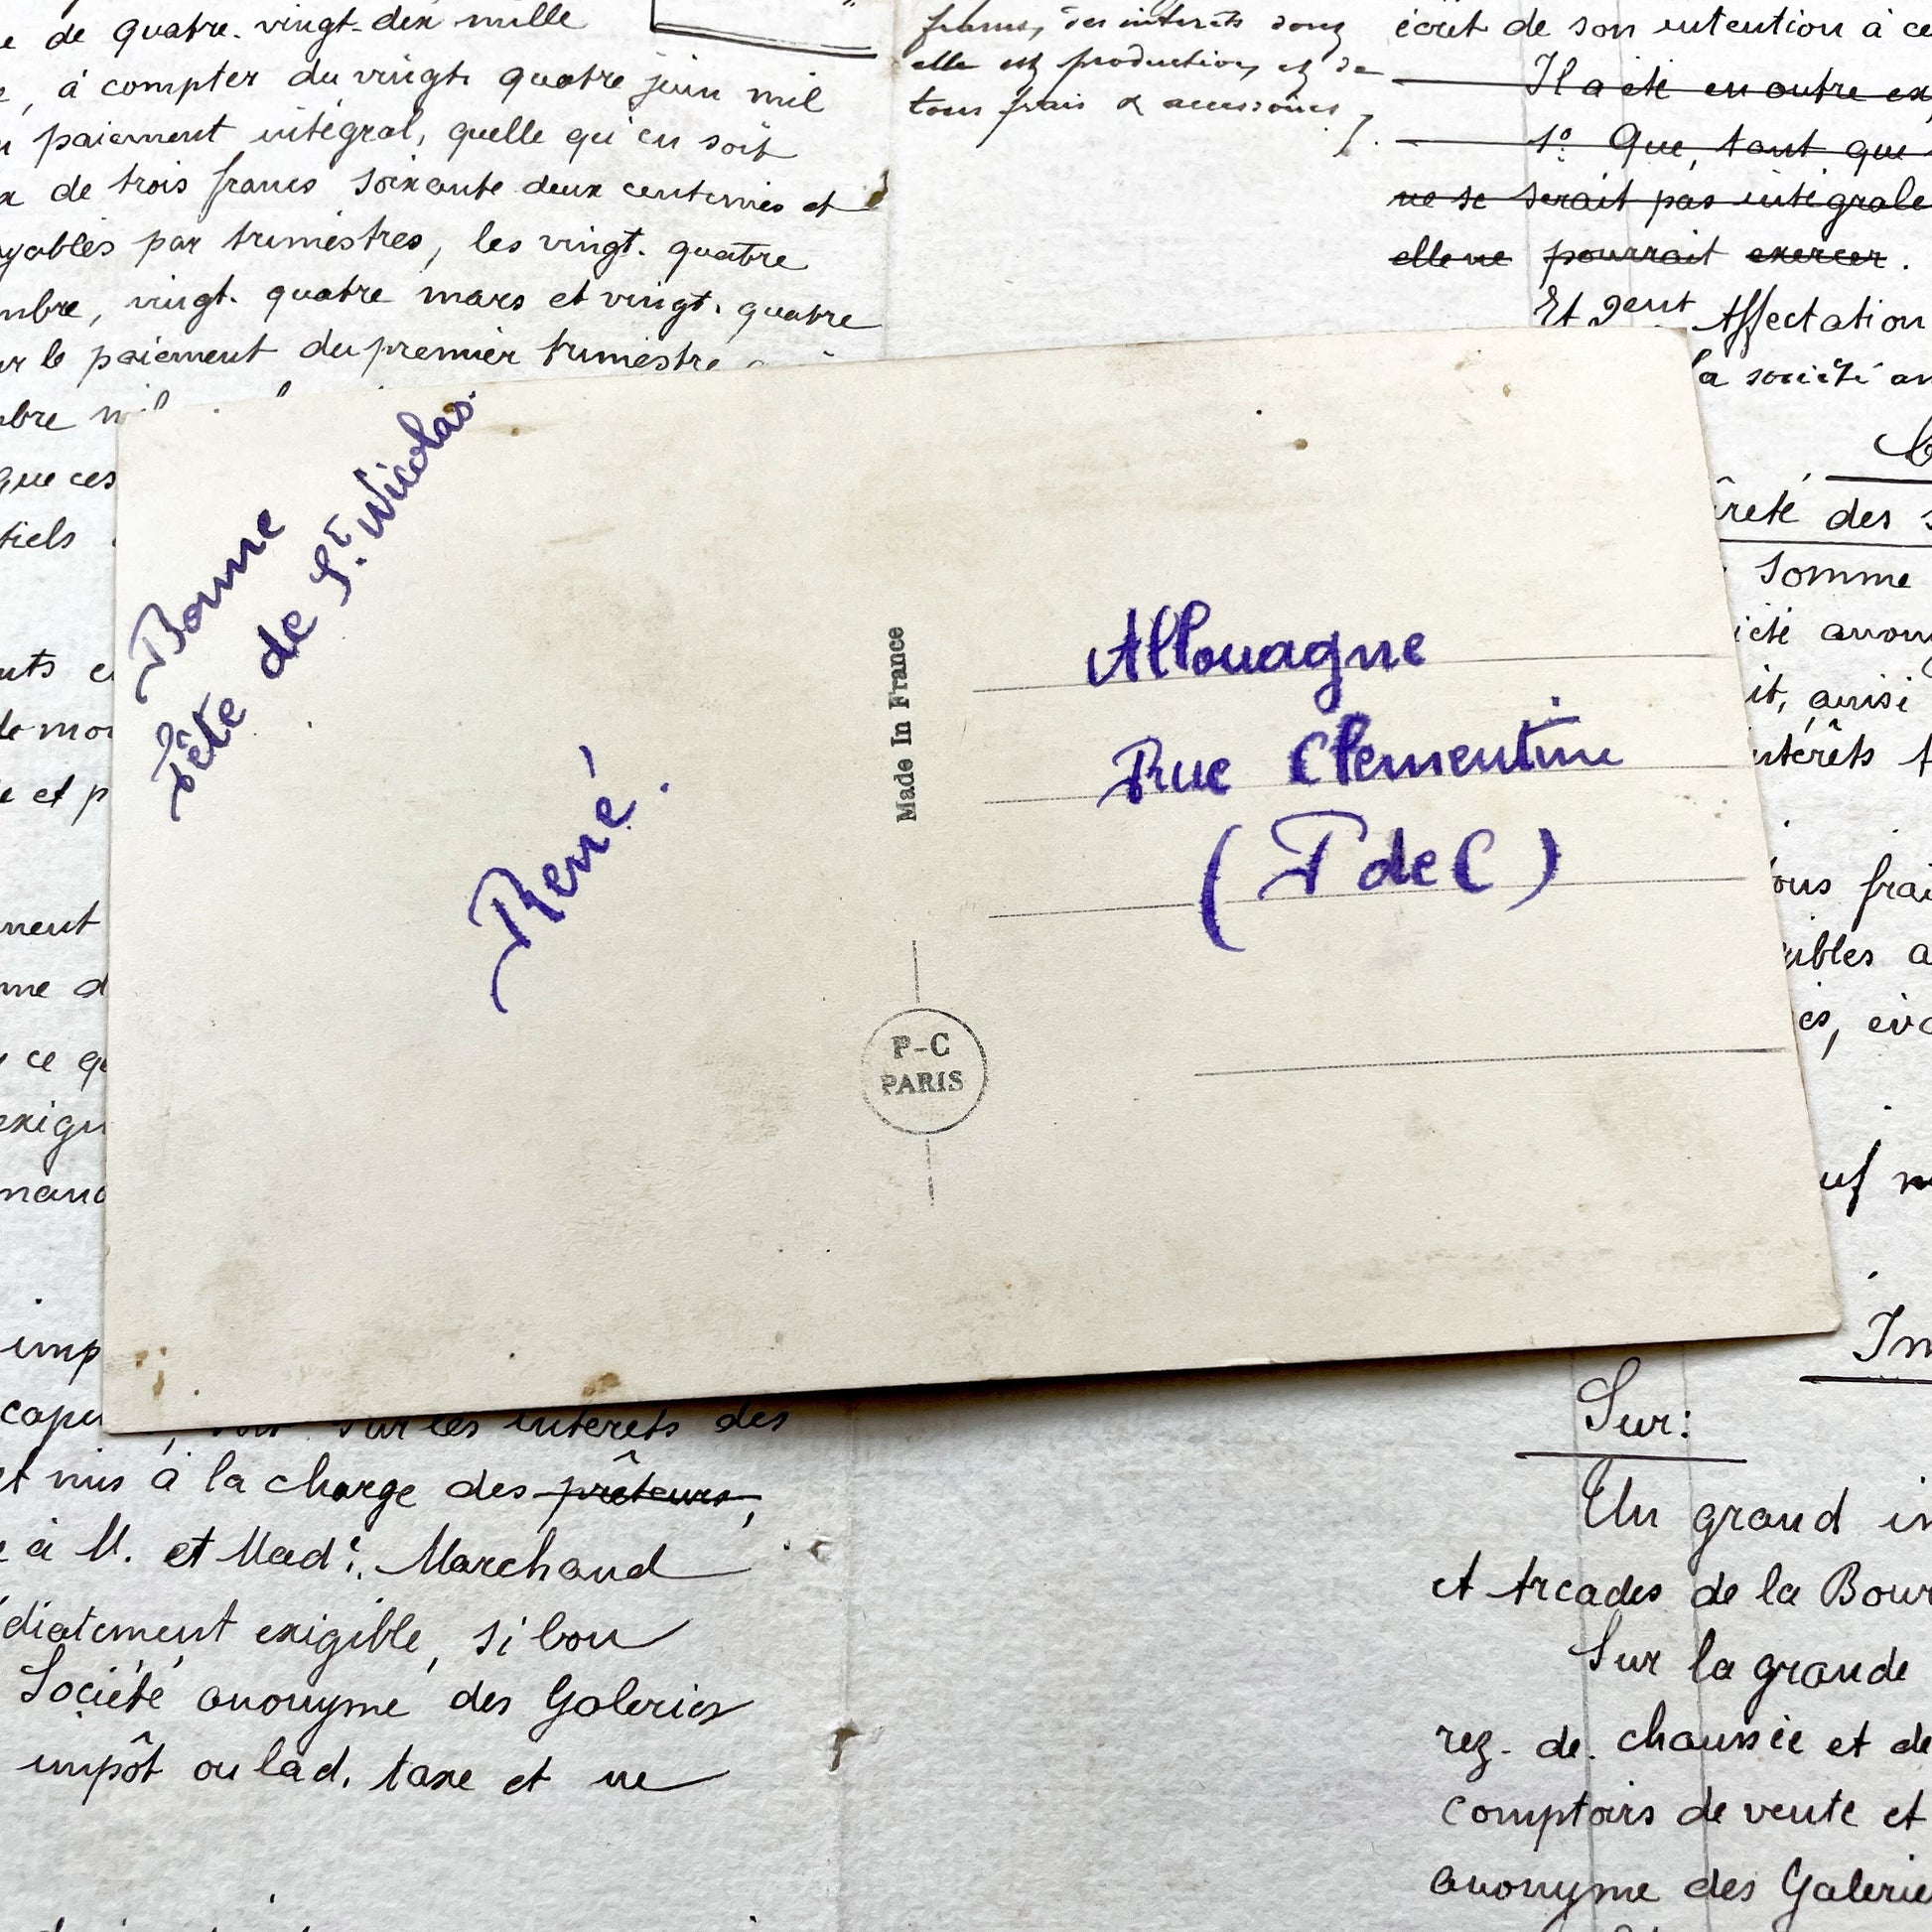 de quatre-vingt-dix mille
, à compter du vingt quatre juin mil
paiement intégral, quelle qu'en soit
de trois francs soixante deux centimes et
yables par trimestres, les vingt-quatre
mbre, vingt-quatre mars et vingt-quatre
le paiement du premier trimestre
que ces
tiels
de mo
et p
ment
me d
ce qu
exigu
imp
sur les intérêts des
et mis à la charge des prêteurs,
à M. et Made. Marchand
diatement exigible, si bon
Société anonyme des Galeries
impôt ou lad. taxe et ne
francs, des intérêts dont
elle est productive, et de
tous frais & accessoires
écrit de son intention à ce
Il a été en outre ex
1º. Que, tant que
ne se serait pas intégrale
elle ne pourrait exercer.
Et Affectation
la société an
reté des s
somme
été anony
it, ainsi
ntérêts
tous frai
ibles a
es, évo
uf
Im
Sur:
Un grand im
et Arcades de la Bour
Sur la grande
rez-de-chaussée et de
comptoirs de vente et
anonyme des Galerie
Bonne
Fête de St. Nicolas.
René.
Made In France
P-C
PARIS
Allouagne
Rue Clementine
(P de C)